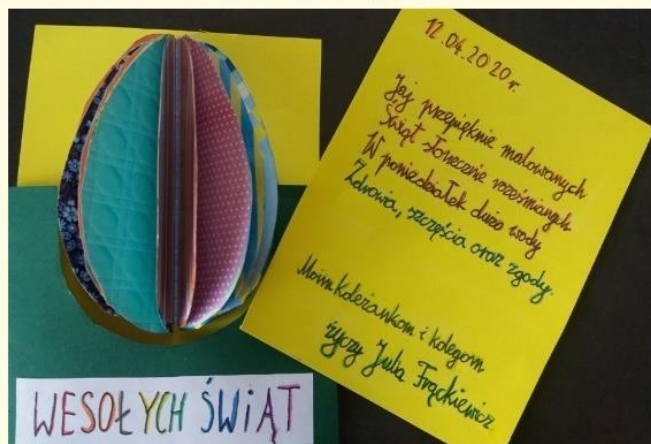 WESOŁYCH ŚWIĄT
12.04.2020r.
Jaj przepięknie malowanych
Świąt słonecznie roześmianych
W poniedziałek dużo wody
Zdrowia, szczęścia oraz zgody.
Moim koleżankom i kolegom
życzy Julia Frąckiewicz